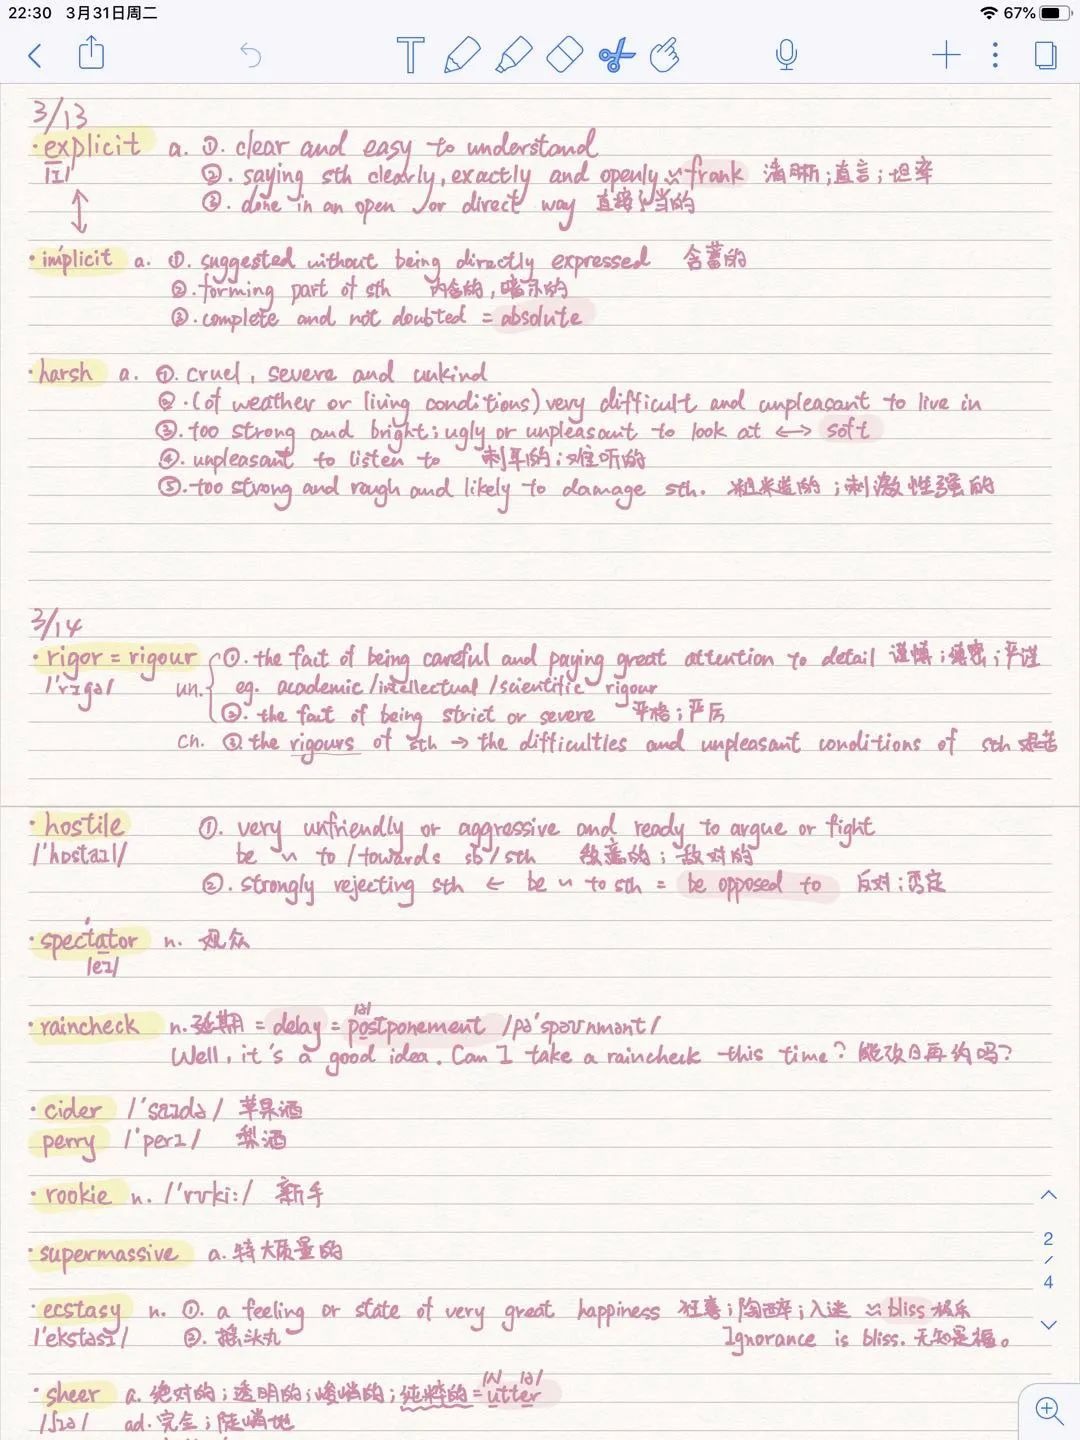 22:30 3月31日周二 67%
3/13
·explicit a. ①. clear and easy to understand
/ɪ/ ②. saying sth clearly, exactly and openly ≈ frank 清晰;直言;坦率
③. done in an open or direct way 直接了当的
·implicit a. ①. suggested without being directly expressed 含蓄的
②. forming part of sth 内含的,暗示的
③. complete and not doubted = absolute
·harsh a. ①. cruel, severe and unkind
②. (of weather or living conditions) very difficult and unpleasant to live in
③. too strong and bright; ugly or unpleasant to look at ↔ soft
④. unpleasant to listen to 刺耳的;难听的
⑤. too strong and rough and likely to damage sth. 粗糙的;刺激性强的
3/14
·rigor = rigour ①. the fact of being careful and paying great attention to detail 谨慎;缜密;严谨
/'rɪgə/ un. eg. academic/intellectual/scientific rigour
②. the fact of being strict or severe 严格;严厉
cn. ③ the rigours of sth → the difficulties and unpleasant conditions of sth 艰苦
·hostile ①. very unfriendly or aggressive and ready to argue or fight
/'hɒstaɪl/ be ~ to/towards sb/sth 敌意的;敌对的
②. strongly rejecting sth ← be ~ to sth = be opposed to 反对;否定
·spectator n. 观众
/eɪ/
/ə/
·raincheck n. 延期 = delay = postponement /pə'spəʊnmənt/
Well, it's a good idea. Can I take a raincheck this time? 能改日再约吗?
·cider /'saɪdə/ 苹果酒
perry /'perɪ/ 梨酒
·rookie n. /'rʊki:/ 新手
·supermassive a. 特大质量的
·ecstasy n. ①. a feeling or state of very great happiness 狂喜;陶醉;入迷 ≈ bliss 极乐
/'ekstəsɪ/ ②. 摇头丸 Ignorance is bliss. 无知是福。
/ʌ/ /ə/
·sheer a. 绝对的;透明的;峻峭的;纯粹的 = utter
/ʃɪə/ ad. 完全;陡峭地
2
/
4